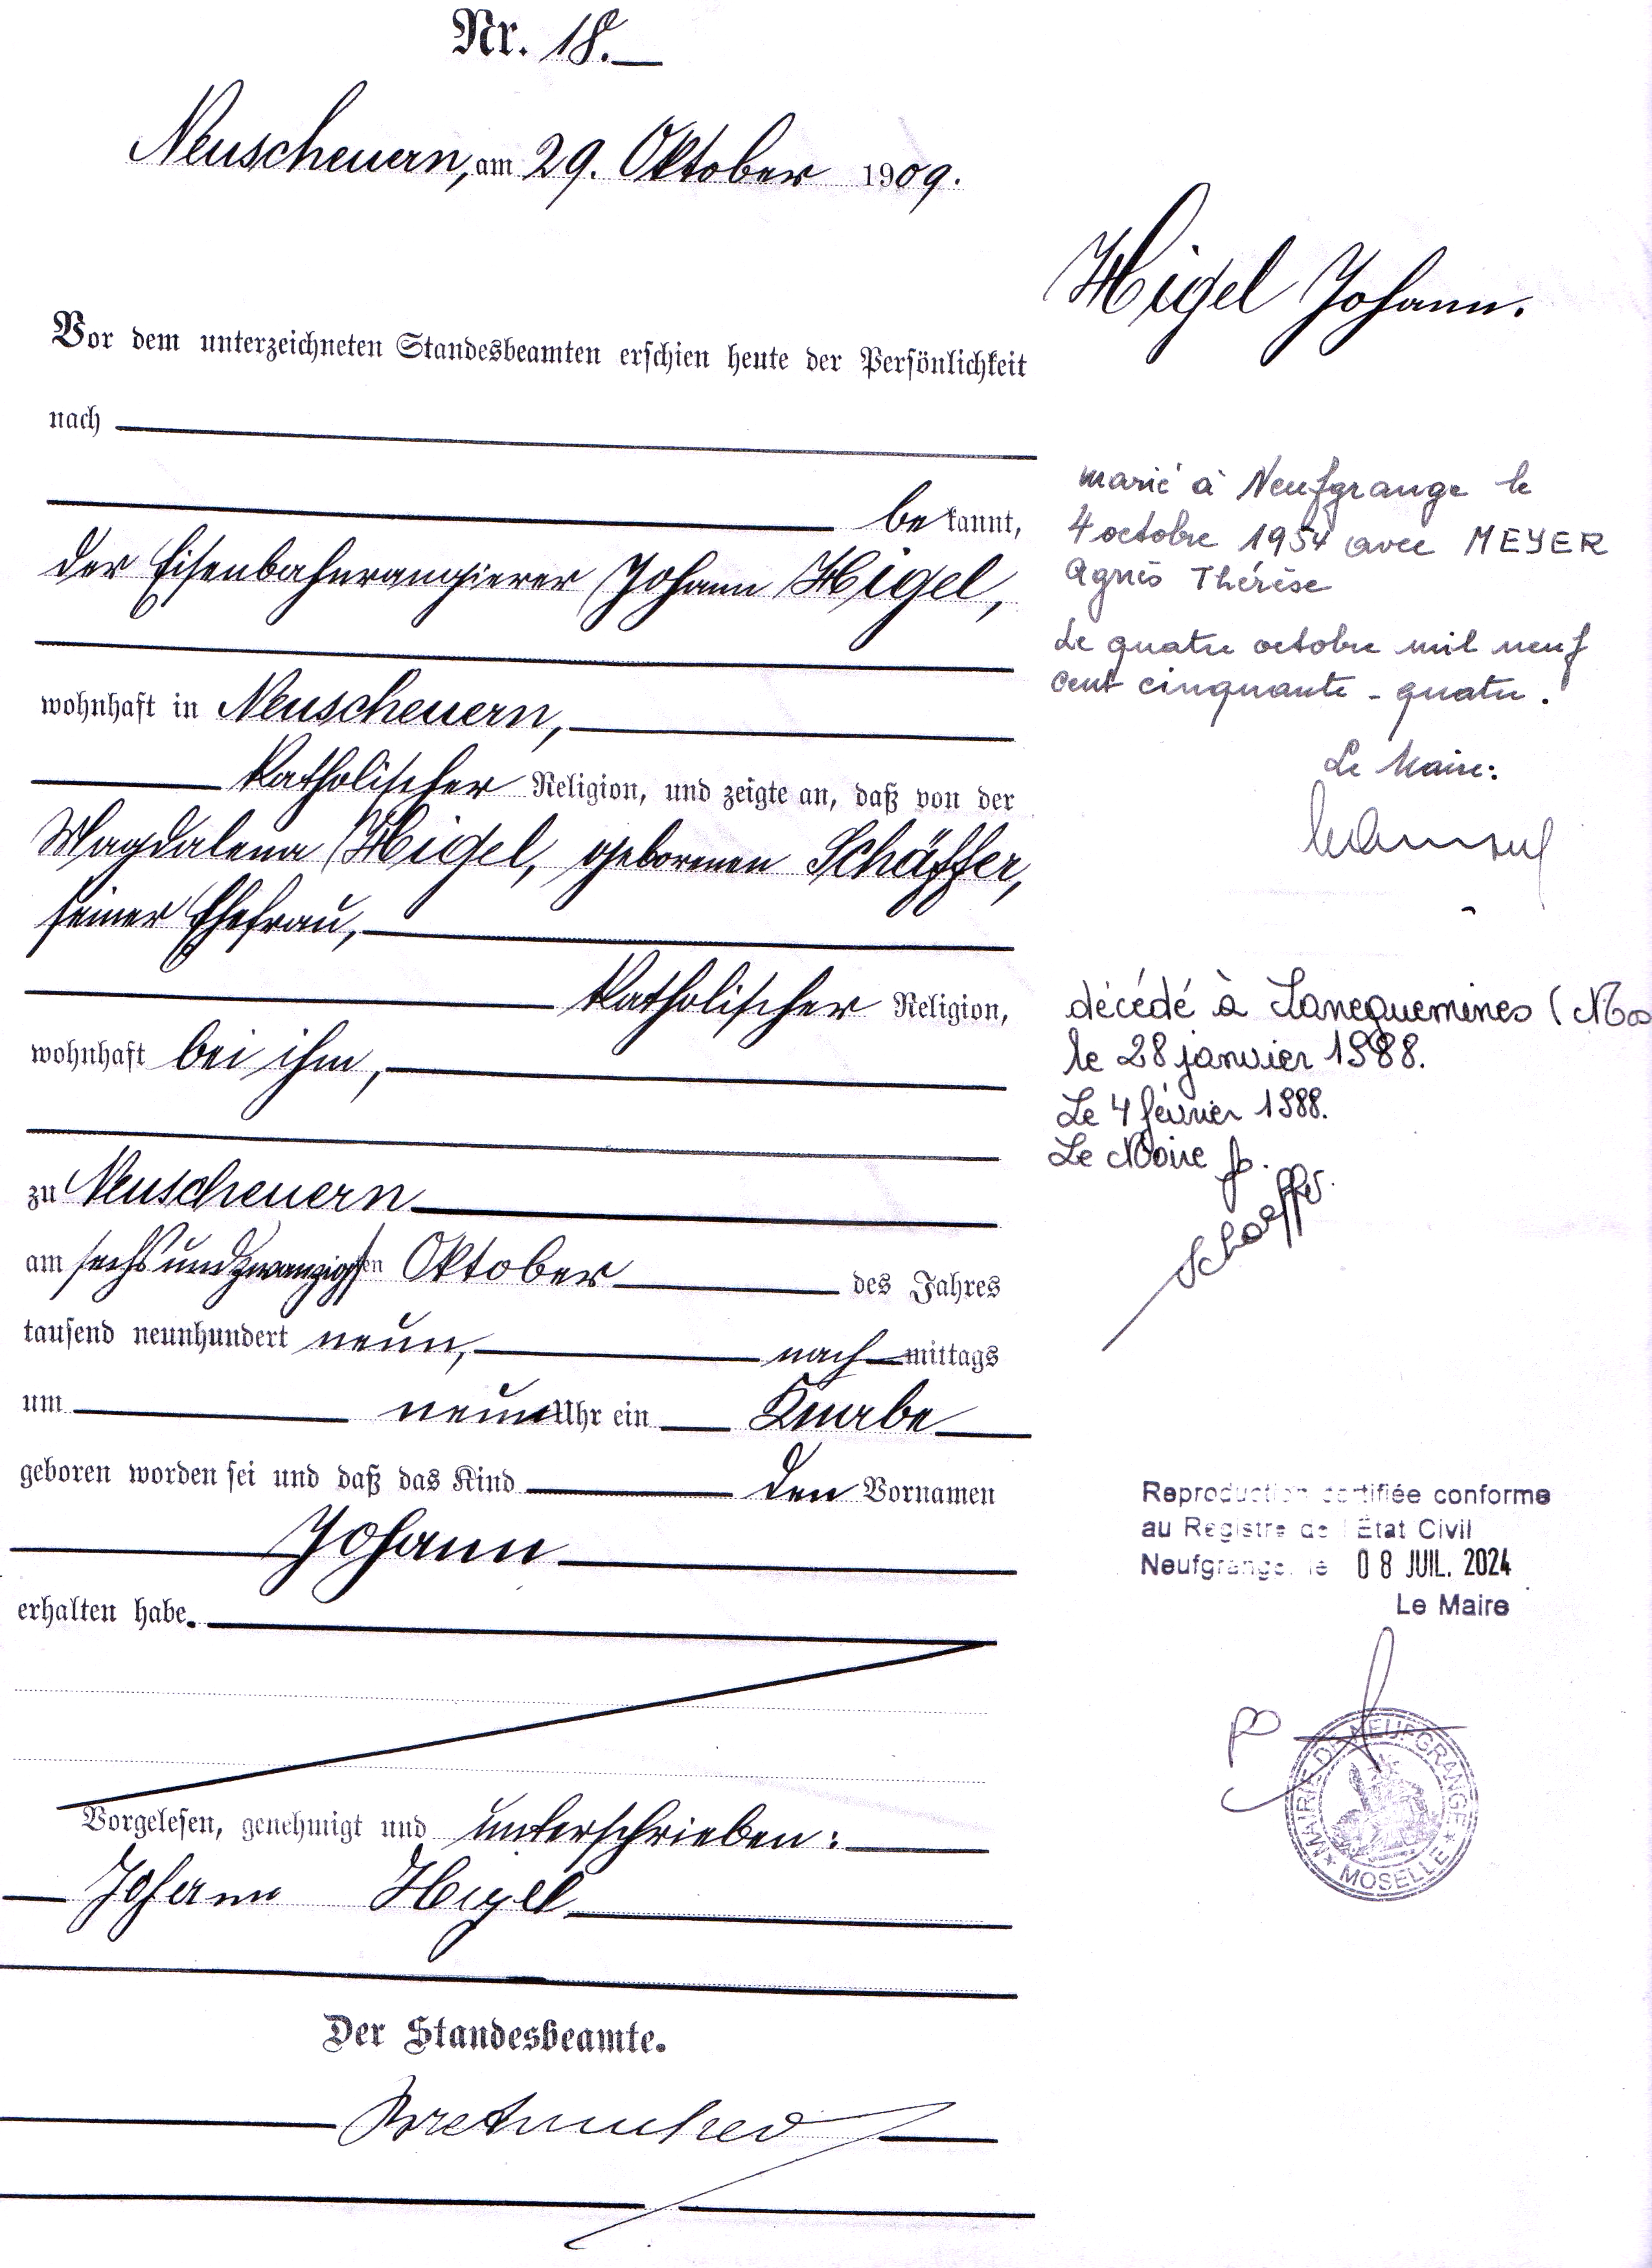 Nr. 18.
Neuscheuern, am 29. Oktober 1909.
Vor dem unterzeichneten Standesbeamten erschien heute der Persönlichkeit
nach
bekannt,
der Eisenbahnrangierer Johann Higel,
wohnhaft in Neuscheuern,
katholischer Religion, und zeigte an, daß von der
Magdalena Higel, geborenen Schäffer,
seiner Ehefrau,
katholischer Religion,
wohnhaft bei ihm,
zu Neuscheuern
am sechsundzwanzigsten Oktober des Jahres
tausend neunhundert neun, nachmittags
um neun Uhr ein Knabe
geboren worden sei und daß das Kind den Vornamen
Johann
erhalten habe.
Vorgelesen, genehmigt und unterschrieben:
Johann Higel
Der Standesbeamte.
Higel Johann.
marié à Neufgrange le
4 octobre 1954 avec MEYER
Agnès Thérèse
Le quatre octobre mil neuf
cent cinquante-quatre.
Le Maire:
décédé à Sarreguemines (Mos
le 28 janvier 1988.
Le 4 février 1988.
Le Maire
Schaeffer
Reproduction certifiée conforme
au Registre de l'État Civil
Neufgrange, le 08 JUIL. 2024
Le Maire
MAIRIE DE NEUFGRANGE
★ MOSELLE ★